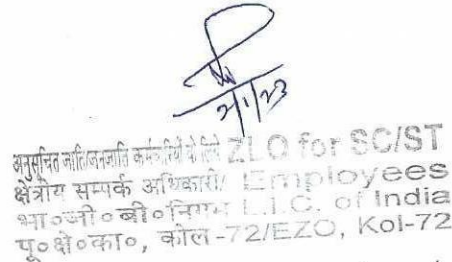 2/1/23
अनुसूचित जाति/जनजाति कर्मचारियों के लिये ZLO for SC/ST
क्षेत्रीय सम्पर्क अधिकारी/ Employees
भा०जी०बी०निगम L.I.C. of India
पू०क्षे०का०, कोल-72/EZO, Kol-72